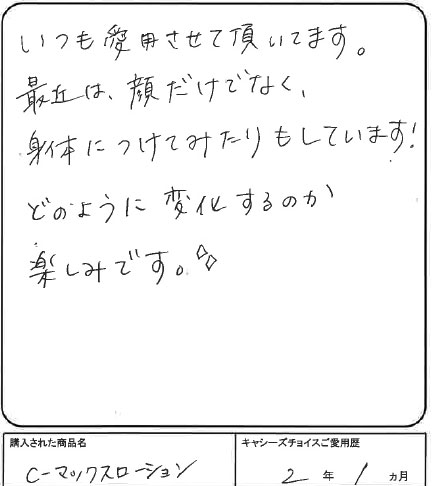 いつも愛用させて頂いてます。
最近は、顔だけでなく、
身体につけてみたりもしています!
どのように変化するのか
楽しみです。
購入された商品名
キャシーズチョイスご愛用歴
C-マックスローション
2年1ヵ月